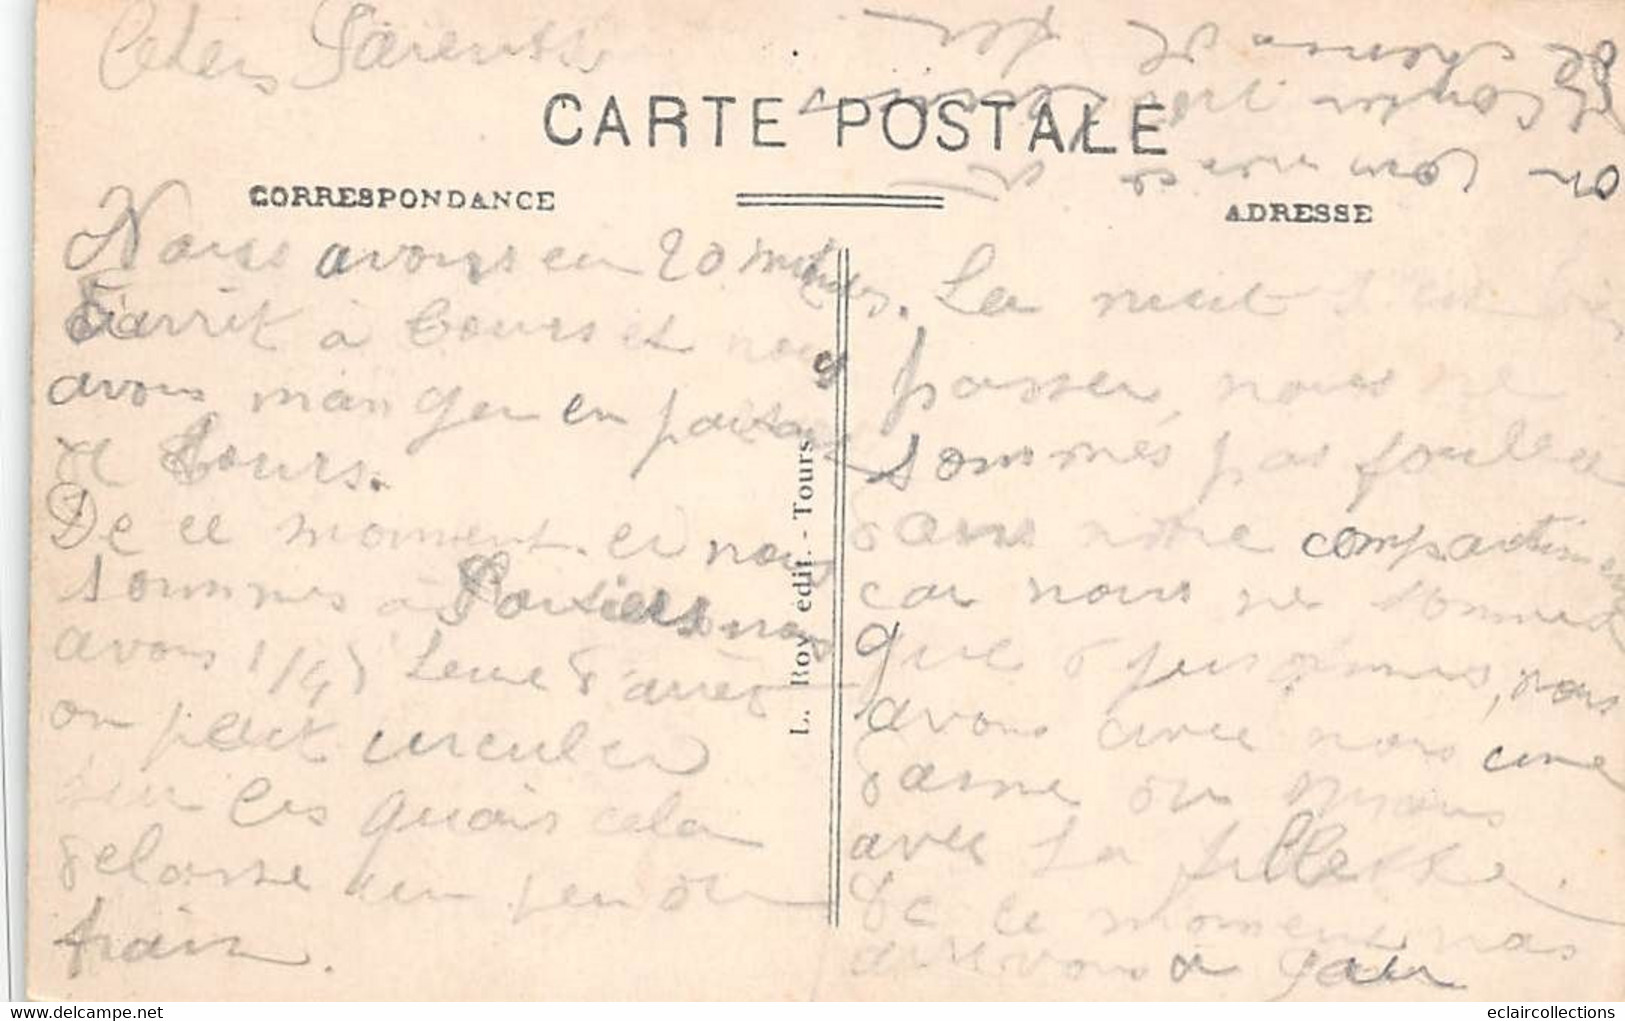 Chers Parents
CARTE POSTALE
CORRESPONDANCE
ADRESSE
Nous avons eu 20 minutes
d'arrêt à Tours et nous
avons manger en partant
de Tours.
De ce moment ci nous
sommes à Poitiers nous
avons 1/4 d'heure d'arrêt
on peut circuler
sur les quais cela
delasse un peu du
train.
L. Roy édit. - Tours
La nuit s'est bien
passer, nous ne
sommes pas foulée
dans notre compartiment
car nous ne sommes
que 6 personnes, nous
avons avec nous une
dame du Mans
avec sa fillette.
De ce moment nous
arrivons à
on commence
eclaircollections